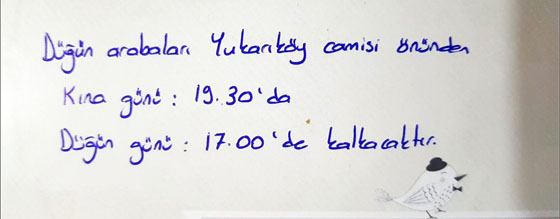 Düğün arabaları Yukarıköy camisi önünden
Kına günü : 19.30'da
Düğün günü : 17.00'de kalkacaktır.